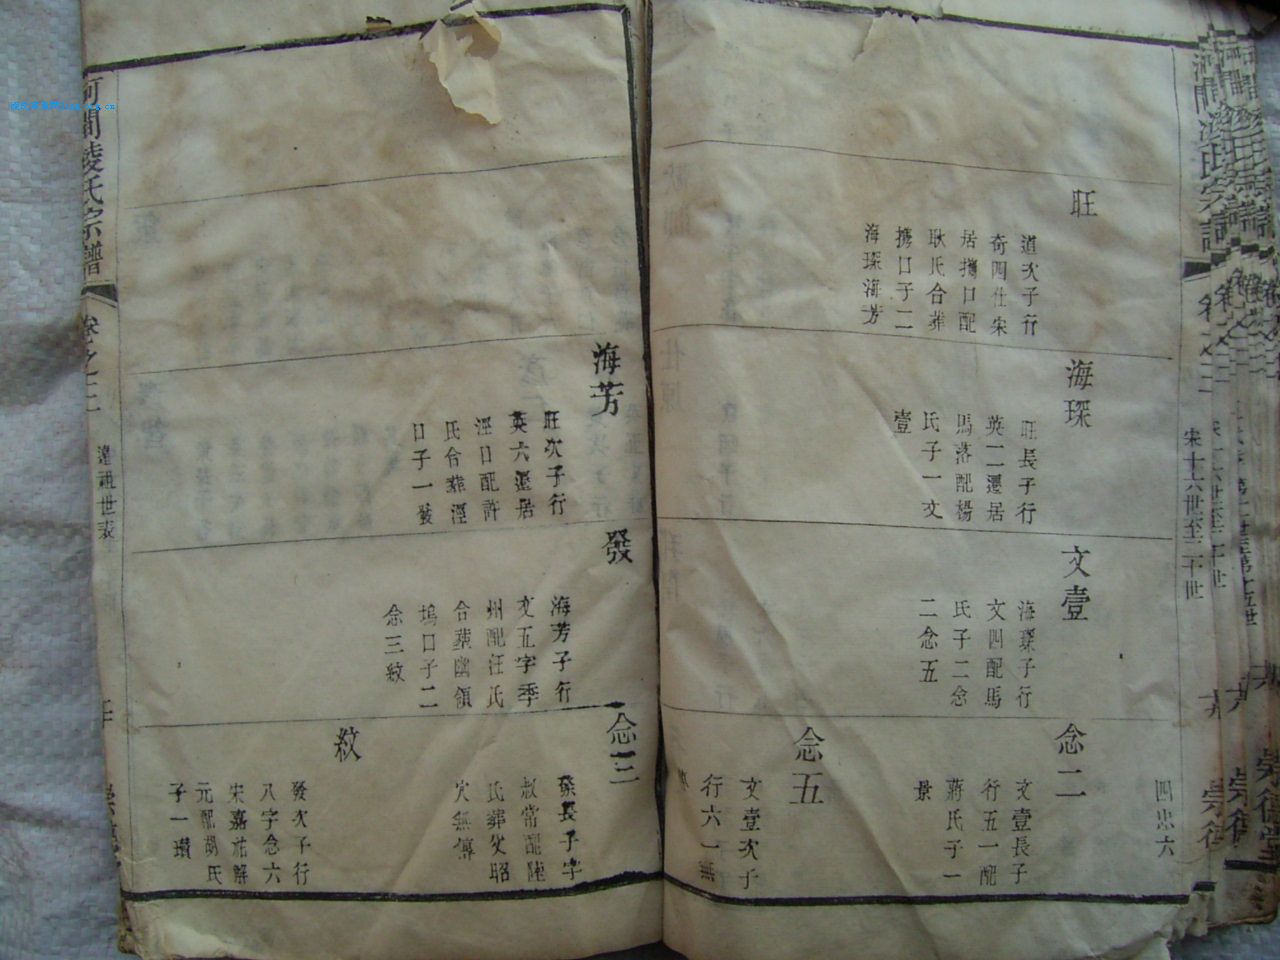 宋十六世至二十世
四忠六
旺
道次子行
奇四仕宋
居攜口配
耿氏合葬
攜口子二
海琛海芳
海琛
旺長子行
英二遷居
馬落配楊
氏子一文
壹
文壹
海琛子行
文四配馬
氏子二念
二念五
念二
文壹長子
行五一配
蔣氏子一
景
念五
文壹次子
行六一無
海芳
旺次子行
英六遷居
涇口配許
氏合葬涇
口子一發
發
海芳子行
文五字季
州配汪氏
合葬幽領
塢口子二
念三紋
念三
發長子字
叔常配陸
氏葬父昭
穴無傳
紋
發次子行
八字念六
宋嘉祐解
元配胡氏
子一瓚
河間凌氏宗譜
卷之二
遠祖世表